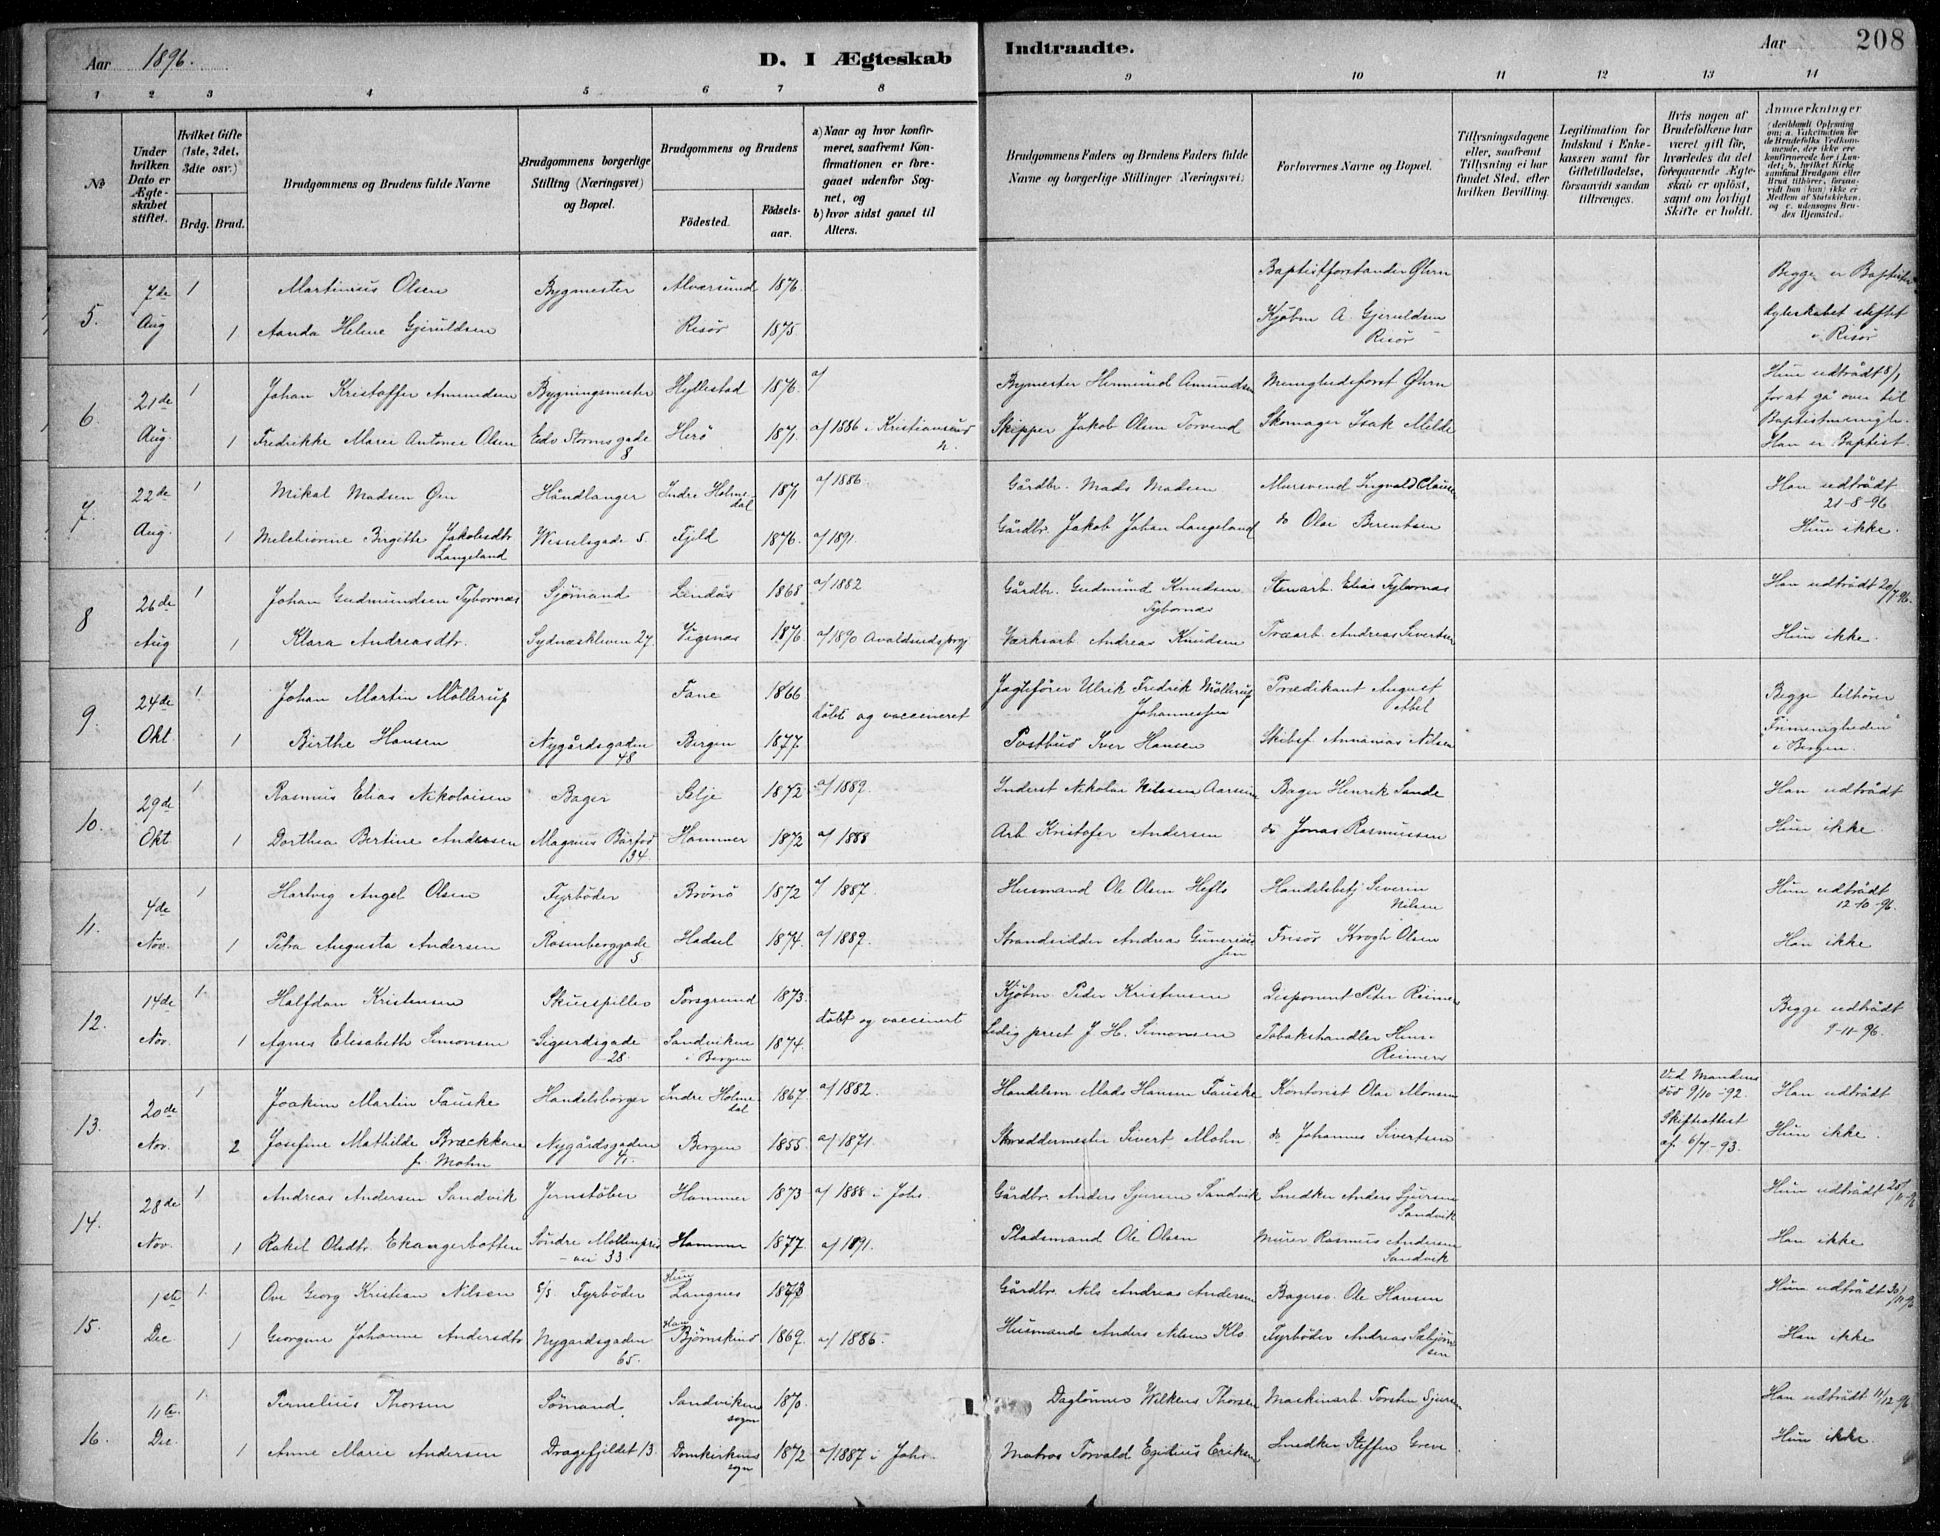 Aar 1896.
D. I Ægteskab
Indtraadte.
Aar
208
1 2 3 4 5 6 7 8 9 10 11 12 13 14
№
Under hvilken Dato er Ægteskabet stiftet.
Hvilket Gifte (1ste, 2det, 3die osv.)
Brdg. Brud.
Brudgommens og Brudens fulde Navne
Brudgommens borgerlige Stilling (Næringsvei) og Bopæl.
Brudgommens og Brudens
Fødested.
Fødselsaar.
a) Naar og hvor konfirmeret, saafremt Konfirmationen er foregaaet udenfor Sognet, og
b) hvor sidst gaaet til Alters.
Brudgommens Faders og Brudens Faders fulde Navne og borgerlige Stillinger (Næringsvei)
Forlovernes Navne og Bopæl.
Tillysningsdagene eller, saafremt Tillysning ei har fundet Sted, efter hvilken Bevilling.
Legitimation for Indskud i Enkekassen samt for Giftetilladelse, forsaavidt saadan tiltrænges.
Hvis nogen af Brudefolkene har været gift før, hvorledes da det foregaaende Ægteskab er opløst, samt om lovligt Skifte er holdt.
Anmærkninger
5. 7de Aug 1 Martinius Olsen Bygmester Alversund 1876. Baptistforstander Øhrn Begge er Baptister
1 Aanda Helene Gjeruldsen Risør 1875. Kjøbm A. Gjeruldsen Risør Ægteskabet stiftet i Risør
6. 21de Aug. 1 Johan Kristoffer Amundsen Bygningsmester Hyllestad 1876. a/ Bymester Hermund Amundsen Menighedsforst Øhrn Hun udtrådt 8/1 for at gå over til Baptistmenigh.
1 Fredrikke Marie Antonie Olsen Edv Stormsgade 8 Herø 1871. a/ 1886 i Kristiansund n. Skipper Jakob Olsen Torvend Skomager Isak Melde Han er Baptist.
7. 22de Aug. 1 Mikal Madsen Øen Håndlanger Indre Holmedal 1871 a/ 1886. Gårdbr. Mads Madsen Mursvend Ingvald Clausen Han udtrådt 21-8-96
1 Melchiorine Birgitte Jakobsdtr Langeland Wesselsgade 5. Fjeld 1876. a/ 1891. Gårdbr. Jakob Johan Langeland do Olai Berentsen Hun ikke.
8 26de Aug 1 Johan Gudmundsen Fybornæs Sjømand Lindås 1868 a/ 1882 Gårdbr. Gudmund Knudsen Fybornæs Stenarb. Elias Fybornæs Han udtrådt 20/7 96.
1 Klara Andreasdtr. Sydnæskleven 27. Vigsnæs 1876. a/ 1890 Værksarb Andreas Knudsen Træarb. Andreas Sivertsen Hun ikke.
9. 24de Okt. 1. Johan Martin Möllerup Fane 1866 døbt og vaccineret Jagtefører Ulrik Fredrik Möllerup Johannessen Prædikant August Abel Begge tilhører Frimenigheden i Bergen.
1 Birthe Hansen Nygårdsgaden 48 Bergen 1877. Postbud Iver Hansen Skibsf. Annanias Nilsen
10. 29de Okt 1 Rasmus Elias Nikolaisen Bager Selje 1872 a/ 1889. Inderst Nikolai Nilssen Bager Henrik Sande Han udtrådt
1 Dorthea Bertine Andersen Magnus Barfod 34 Hammer 1872 a/ 1888 Arb Kristofer Andersen do Jonas Rasmussen Hun ikke
11. 4de Nov. 1 Hartvig Angel Olsen Fyrbøder Brønø 1872 a/ 1887. Husmand Ole Olsen Hefts Handelsbetj Severin Nilsen Hun udtrådt 12-10-96.
1 Petra Augusta Andersen Rosenberggade 5 Hadsel 1874. a/ 1889. Strandsidder Andreas Guneriussen Frisør Krogh Olsen Han ikke
12. 14de Nov. 1. Halfdan Kristensen Skuespiller Porsgrund 1873. døbt og vaccinert Kjøbm Peder Kristensen Disponent Peter Reimers Begge udtrådt 9-11-96.
1 Agnes Elisabeth Simonsen Sigurdsgade 28. Sandviken i Bergen 1874. Ledig prest J H. Simonsen Tobakshandler Hans Reimers
13. 20de Nov. 1 Joakim Martin Fauske Handelsborger Indre Holmedal 1867 a/ 1882. Handelsm Mads Hansen Fauske Kontorist Olai Monsen Ved Mandens død 9/10-92. Han udtrådt
2 Josefine Mathilde Bræckhane f. Mohn Nygårdsgaden 41. Bergen 1855 a/ 1871. Skræddermester Sivert Mohn. do Johannes Sivertsen Skifteattest af 6/7-93. Hun ikke.
14. 28de Nov. 1. Andreas Andersen Sandvik Jernstøber Hammer 1873 a/ 1888 i Johs. Gårdbr. Anders Sjursen Sandvik Snedker Anders Sjursen Sandvik Hun udtrådt 28/11-96
1 Rakel Olsdtr Ekangerbotten Søndre Møllenpris vei 33. Hammer 1877. a/ 1891. Pladsmand Ole Olsen Murer Rasmus Andersen Sandvik Han ikke
15. 1ste Dec 1. Ove Georg Kristian Nilsen S/S Fyrbøder Hun Langnes 1873 Gårdbr. Nils Andreas Andersen Bagersv. Ole Hansen Hun udtrådt 30/11-96
1 Georgine Johanne Andersdtr Nygårdsgaden 65. Han Bjørnskind 1869. a/ 1886. Husmand Anders Nilsen Klo Fyrbøder Andreas Sæbjørnsen Han ikke
16. 11te Dec. 1. Pernelius Thorsen Sømand. Sandvikens sogn 1870. Daglønner Wilkens Thorsen Maskinarb. Torsten Sjursen Han udtrådt 11/12-96
1 Anne Marie Andersen Dragefjeldet 13. Domkirkens sogn 1872 a/ 1887 i Johs. Matros Torvald Egidius Eriksen Snedker Steffen Greve. Hun ikke.